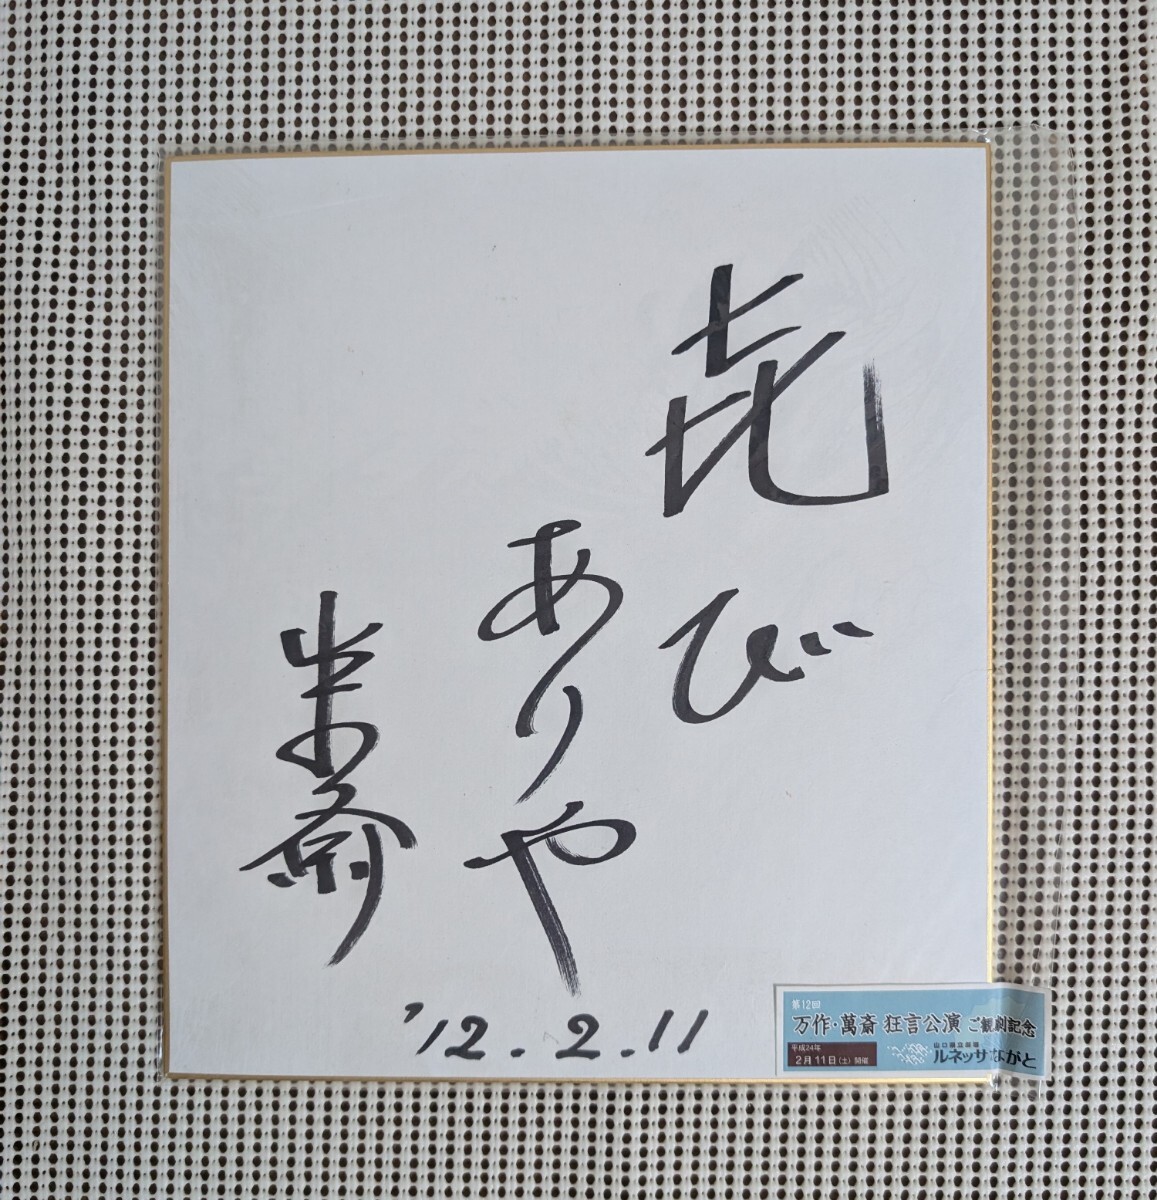 㐂び
ありや
萬斎
'12.2.11
第12回
万作・萬斎 狂言公演 ご観劇記念
平成24年
2月11日(土)開催
山口県立劇場
ルネッサながと